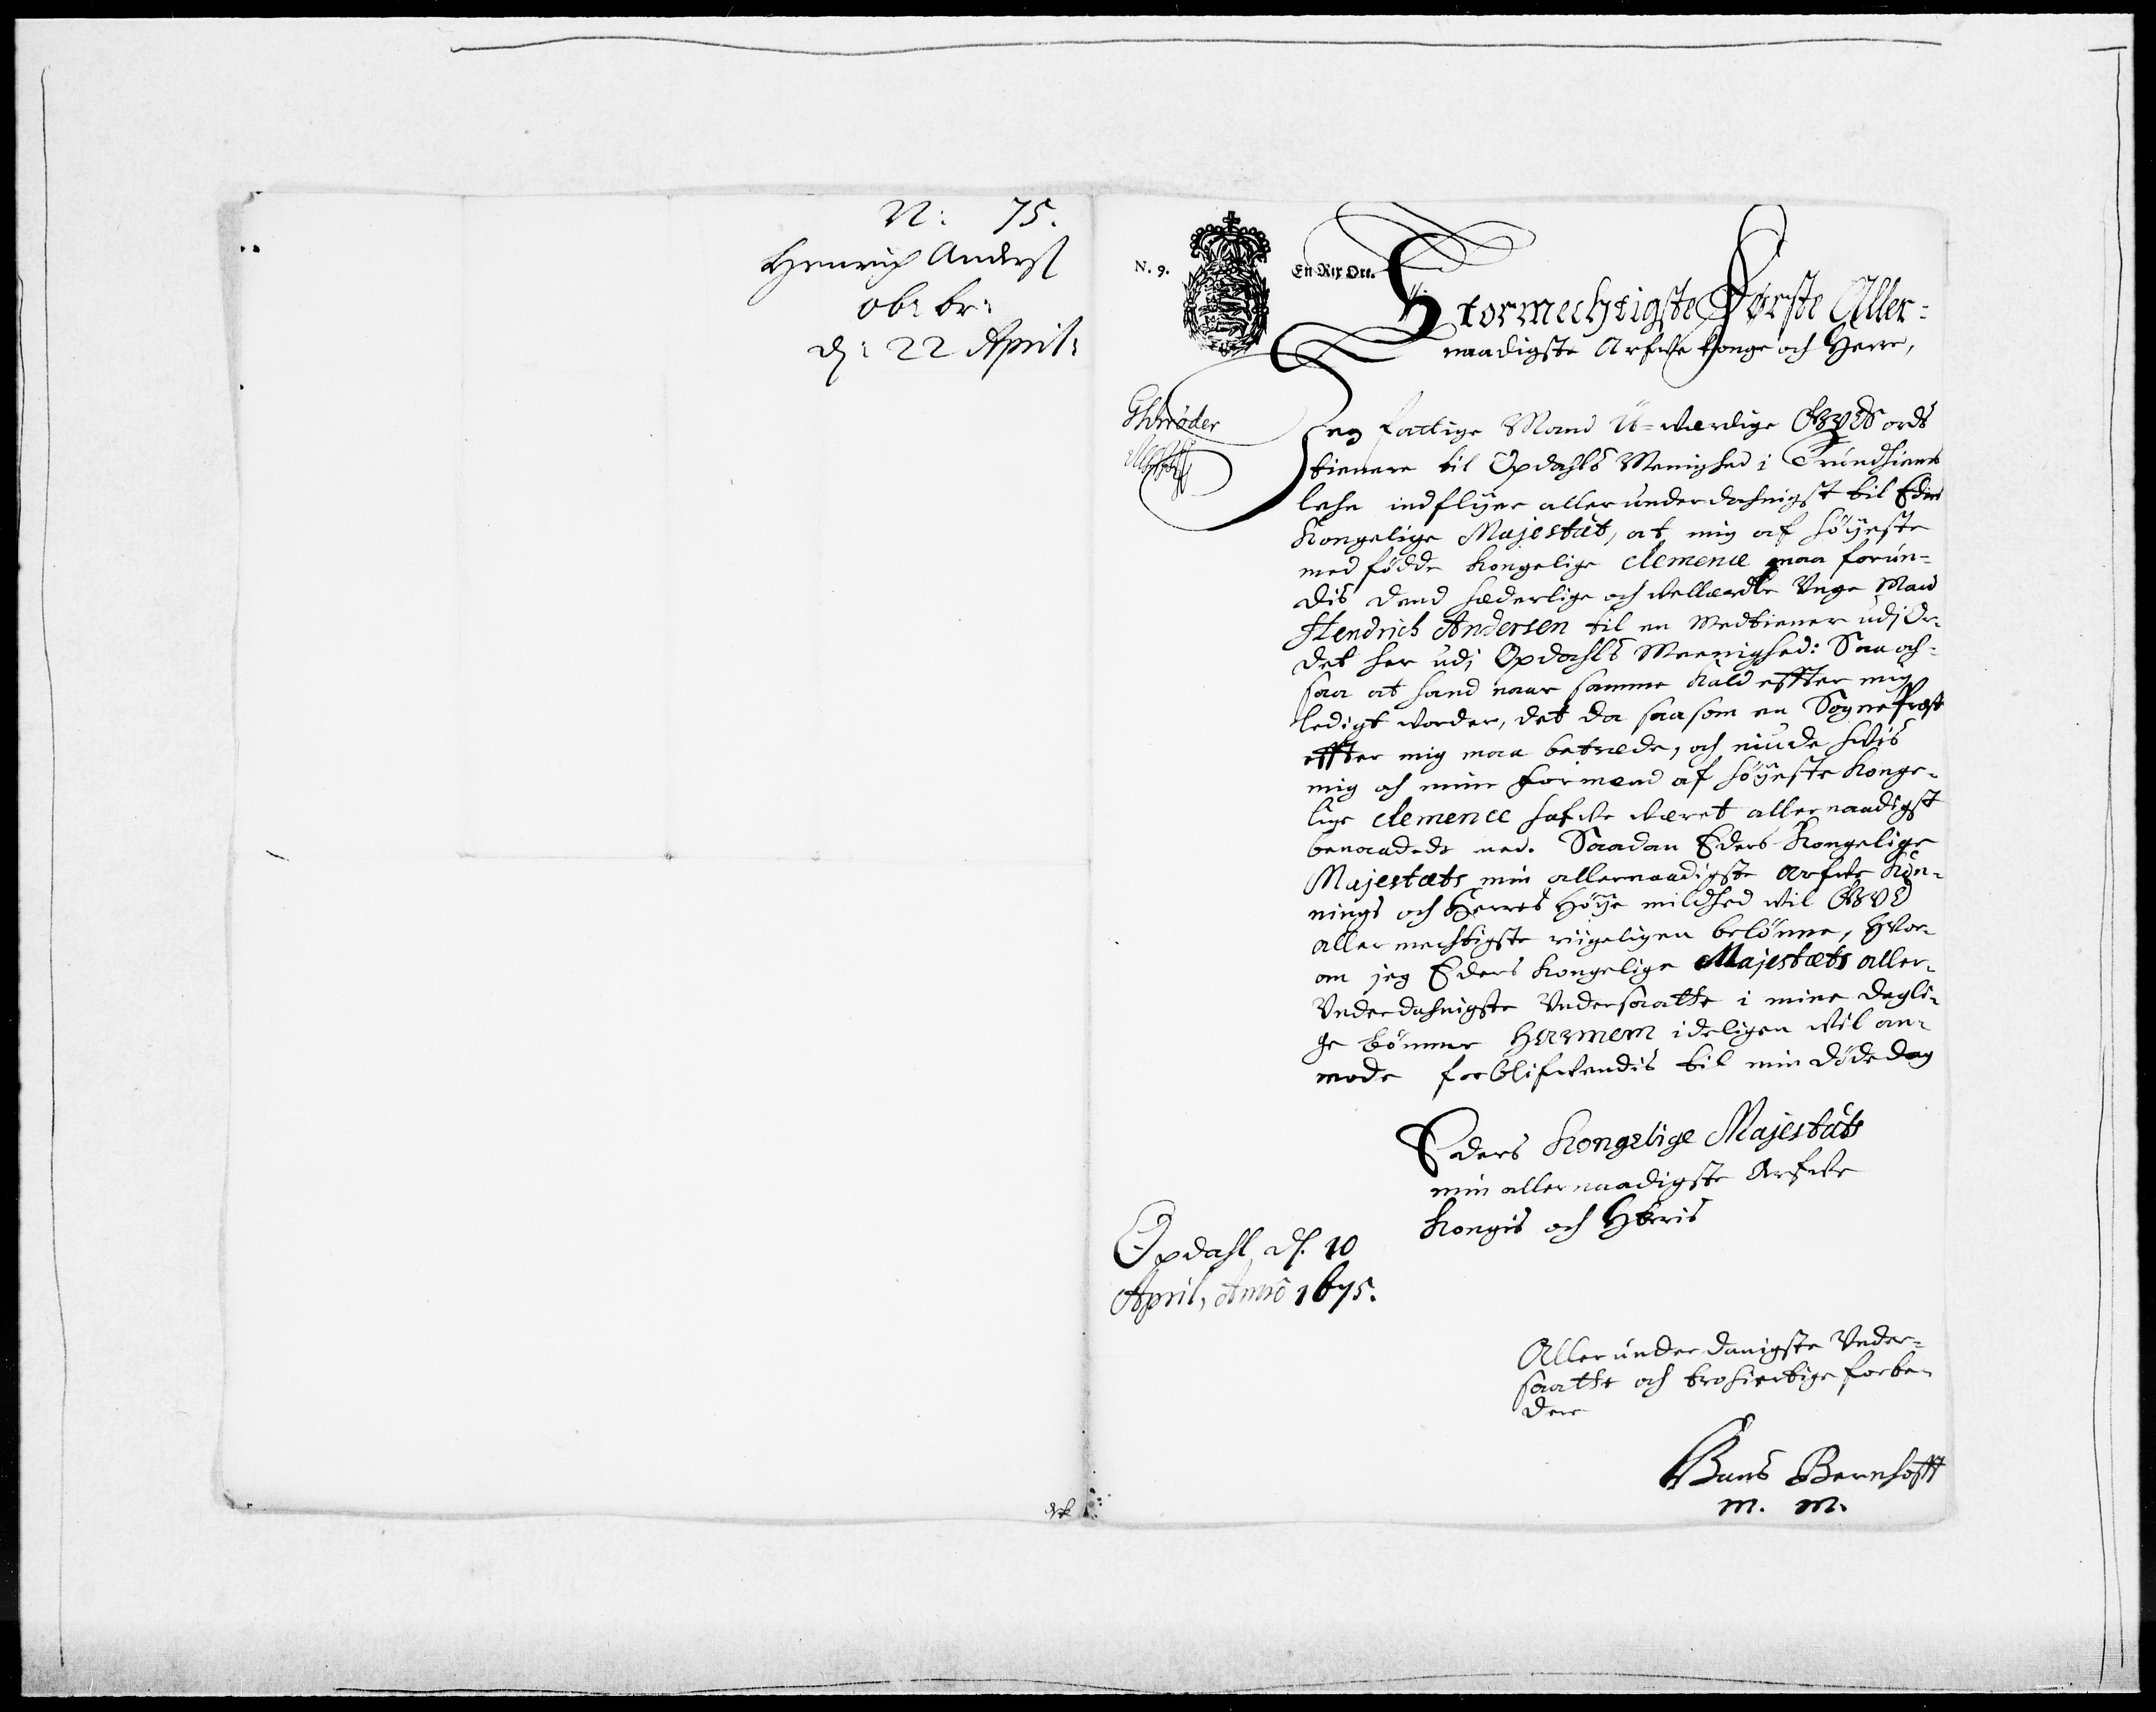 N: 75.
Henrich Anders
ob: br:
d: 22 April:
N. 9.
En Rix Ort.
Stormechtigste Første Aller-
naadigste Arfve Konge och Herre,
Jeg fattige Mand U-værdige GUDS ords
tienere til Opdahls Menighed i Trundhiems
lehn indflyer allerunderdahnigst til Eders
Kongelige Majestät, at mig af høyeste
medfødde Kongelige clemence maa forun-
dis dend hæderlige och vellærde Unge Mand
Hendrich Andersen til en Medtiener udj Or-
det her udj Opdahls Meenighed: Saa och-
saa at hand naar samme Kald effter mig
ledigt vorder, det da saasom en SognePræst
effter mig maa betræde, och niude hvis
mig och mine Formænd af høyeste Konge-
lige clemence hafver været allernaadigst
benaadede med. Saadan Eders Kongelige
Majestæts min allernaadigste Arfve Kon-
nings och Herres Høye mildhed vil GUD
allermechtigste riigeligen belønne, hvor-
om jeg Eders Kongelige Majestæts aller-
Underdahnigste Undersaatte i mine dagli-
ge bønner HERREN ideligen vil an-
mode forblifvendis til min dødedag
Eders Kongelige Majestäts
min allernaadigste Arfve
Kongis och Herris
Opdahl d. 10
April, Anno 1675.
Allerunderdanigste Under-
saatte och trohiertige forbe-
der
Hans Bernhofft
m. m.